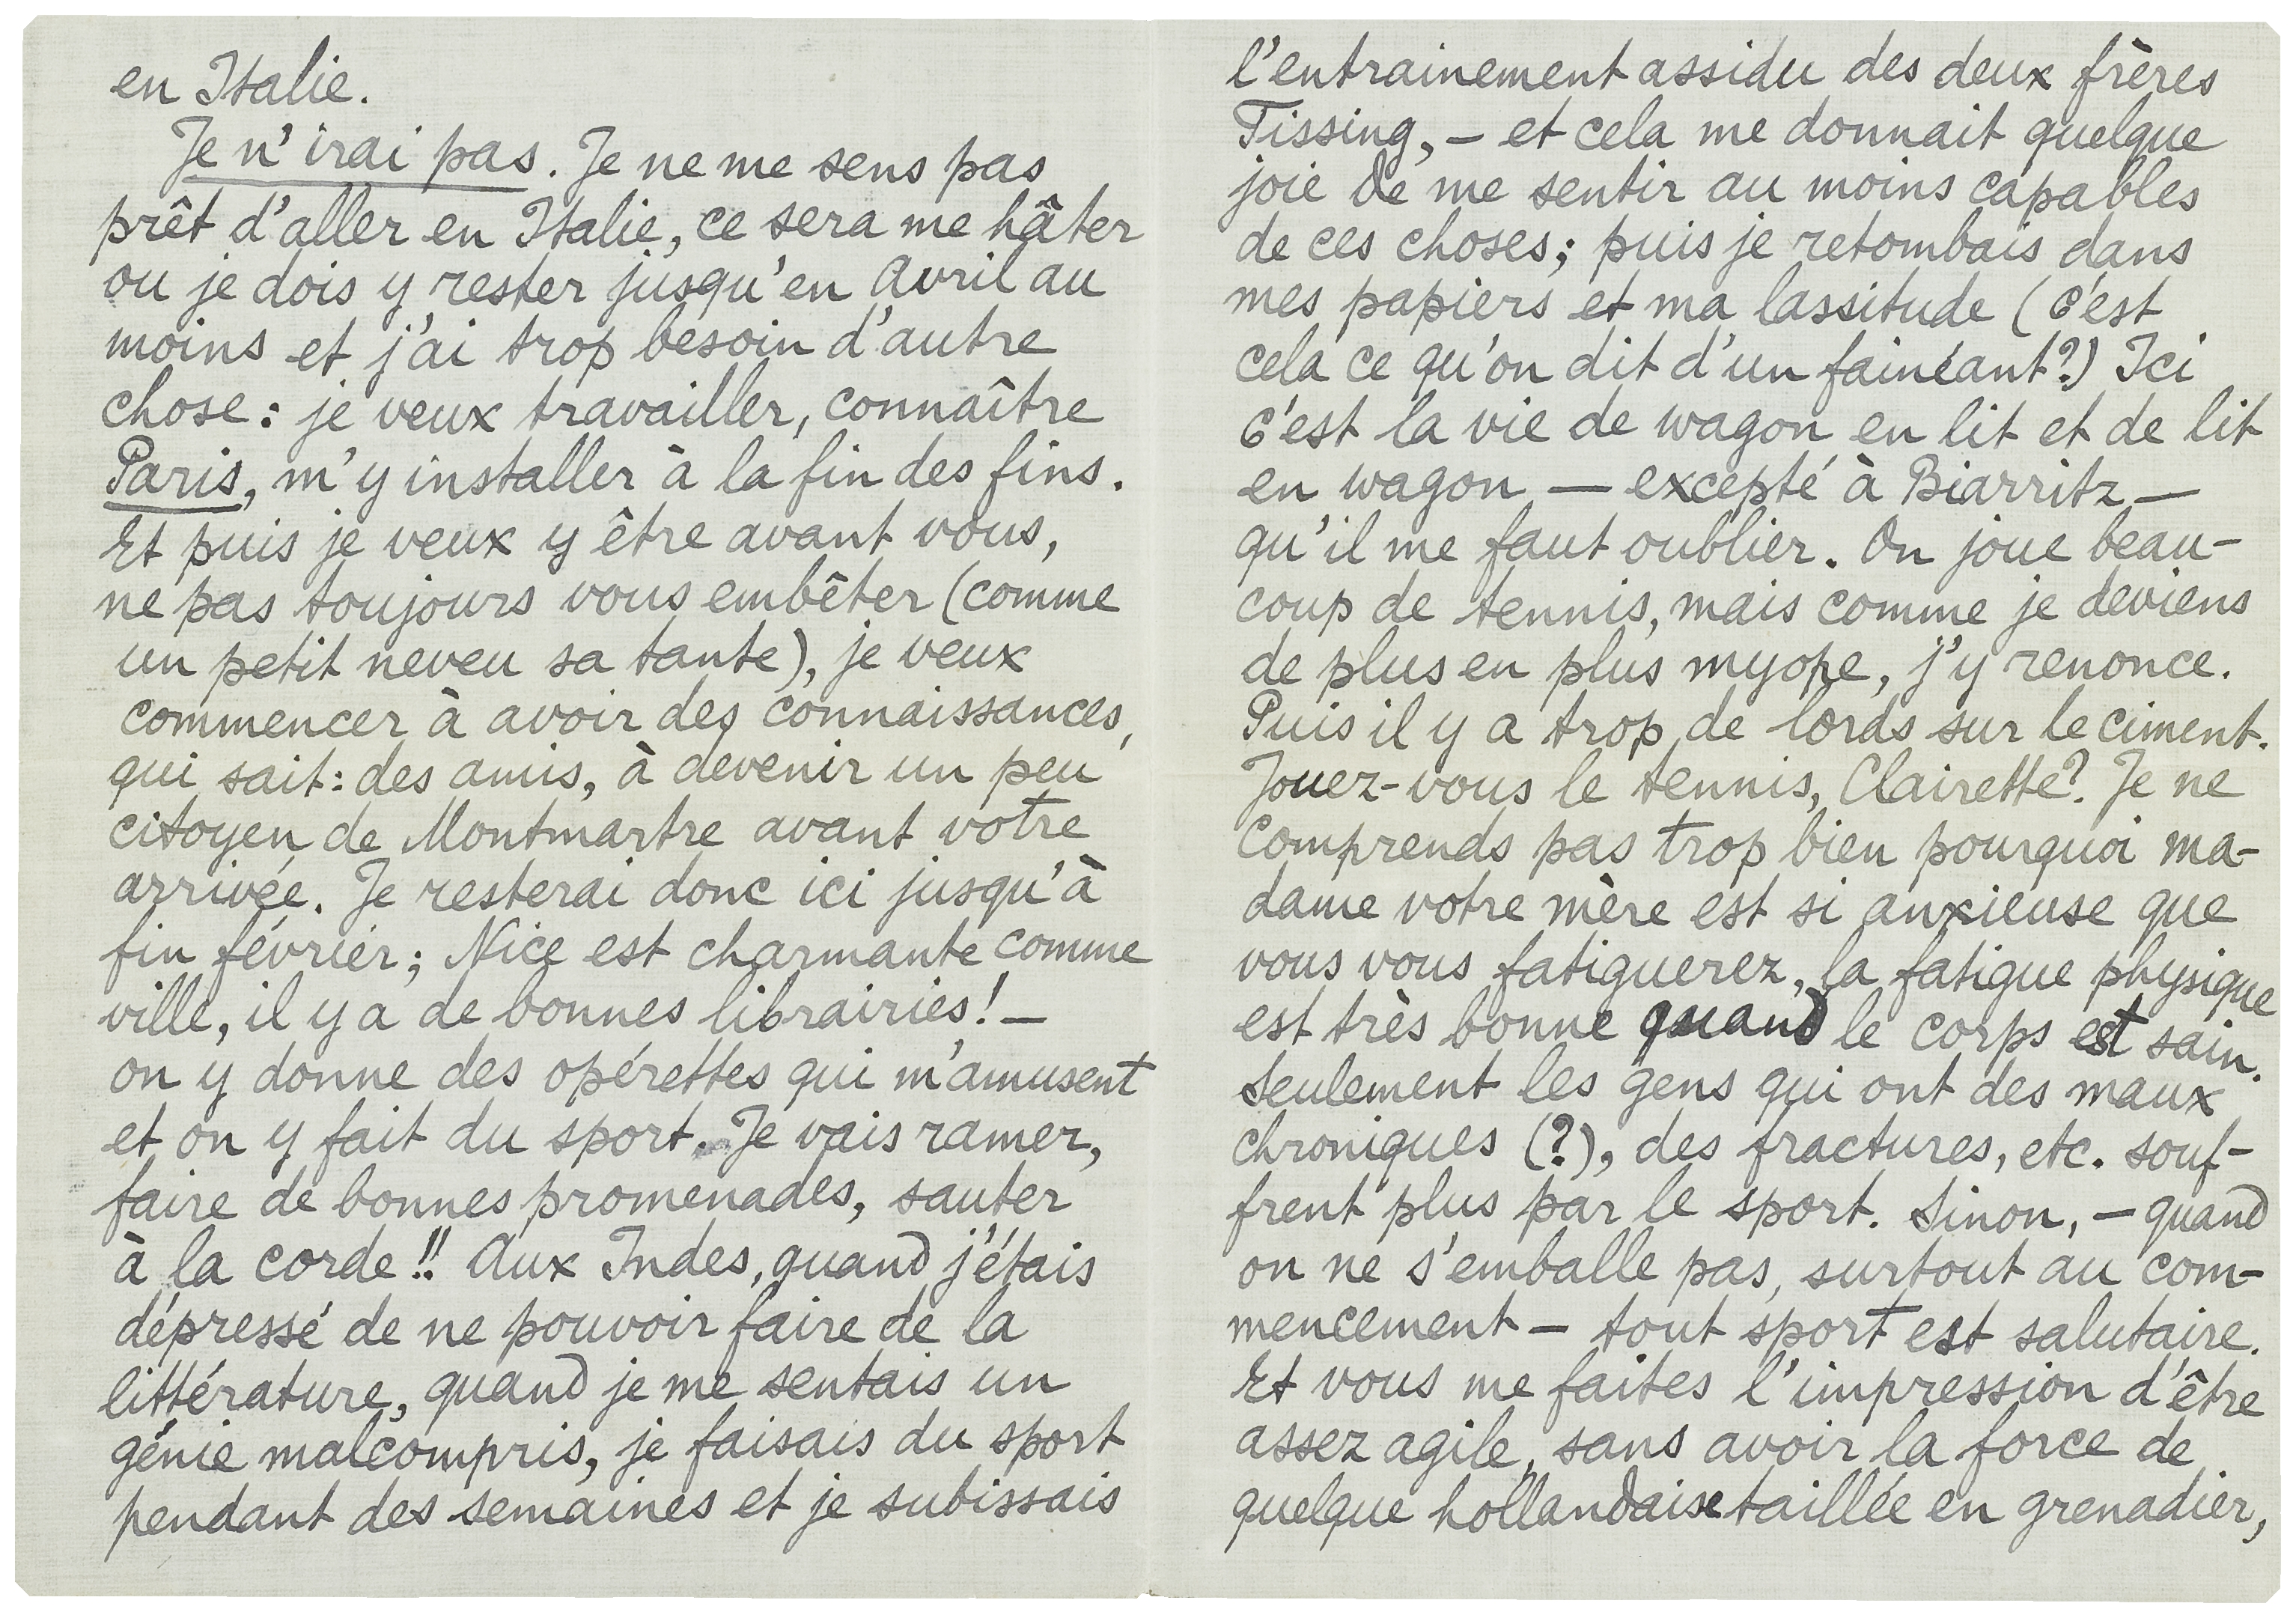 en Italie.
Je n'irai pas. Je ne me sens pas
prêt d'aller en Italie, ce sera me hâter
ou je dois y rester jusqu'en Avril au
moins et j'ai trop besoin d'autre
chose: je veux travailler, connaître
Paris, m'y installer à la fin des fins.
Et puis je veux y être avant vous,
ne pas toujours vous embêter (comme
un petit neveu sa tante), je veux
commencer à avoir des connaissances,
qui sait: des amis, à devenir un peu
citoyen de Montmartre avant votre
arrivée. Je resterai donc ici jusqu'à
fin février; Nice est charmante comme
ville, il y a de bonnes librairies! —
on y donne des opérettes qui m'amusent
et on y fait du sport. Je vais ramer,
faire de bonnes promenades, sauter
à la corde!! Aux Indes, quand j'étais
dépressé de ne pouvoir faire de la
littérature, quand je me sentais un
génie malcompris, je faisais du sport
pendant des semaines et je subissais
l'entrainement assidu des deux frères
Tissing, — et cela me donnait quelque
joie de me sentir au moins capables
de ces choses; puis je retombais dans
mes papiers et ma lassitude (c'est
cela ce qu'on dit d'un fainéant?) Ici
c'est la vie de wagon en lit et de lit
en wagon — excepté à Biarritz —
qu'il me faut oublier. On joue beau-
coup de tennis, mais comme je deviens
de plus en plus myope, j'y renonce.
Puis il y a trop de lords sur le ciment.
Jouez-vous le tennis, Clairette? Je ne
comprends pas trop bien pourquoi ma-
dame votre mère est si anxieuse que
vous vous fatiguerez, la fatigue physique
est très bonne quand le corps est sain.
Seulement les gens qui ont des maux
chroniques (?), des fractures, etc. souf-
frent plus par le sport. Sinon, — quand
on ne s'emballe pas, surtout au com-
mencement — tout sport est salutaire.
Et vous me faites l'impression d'être
assez agile, sans avoir la force de
quelque hollandaise taillée en grenadier,